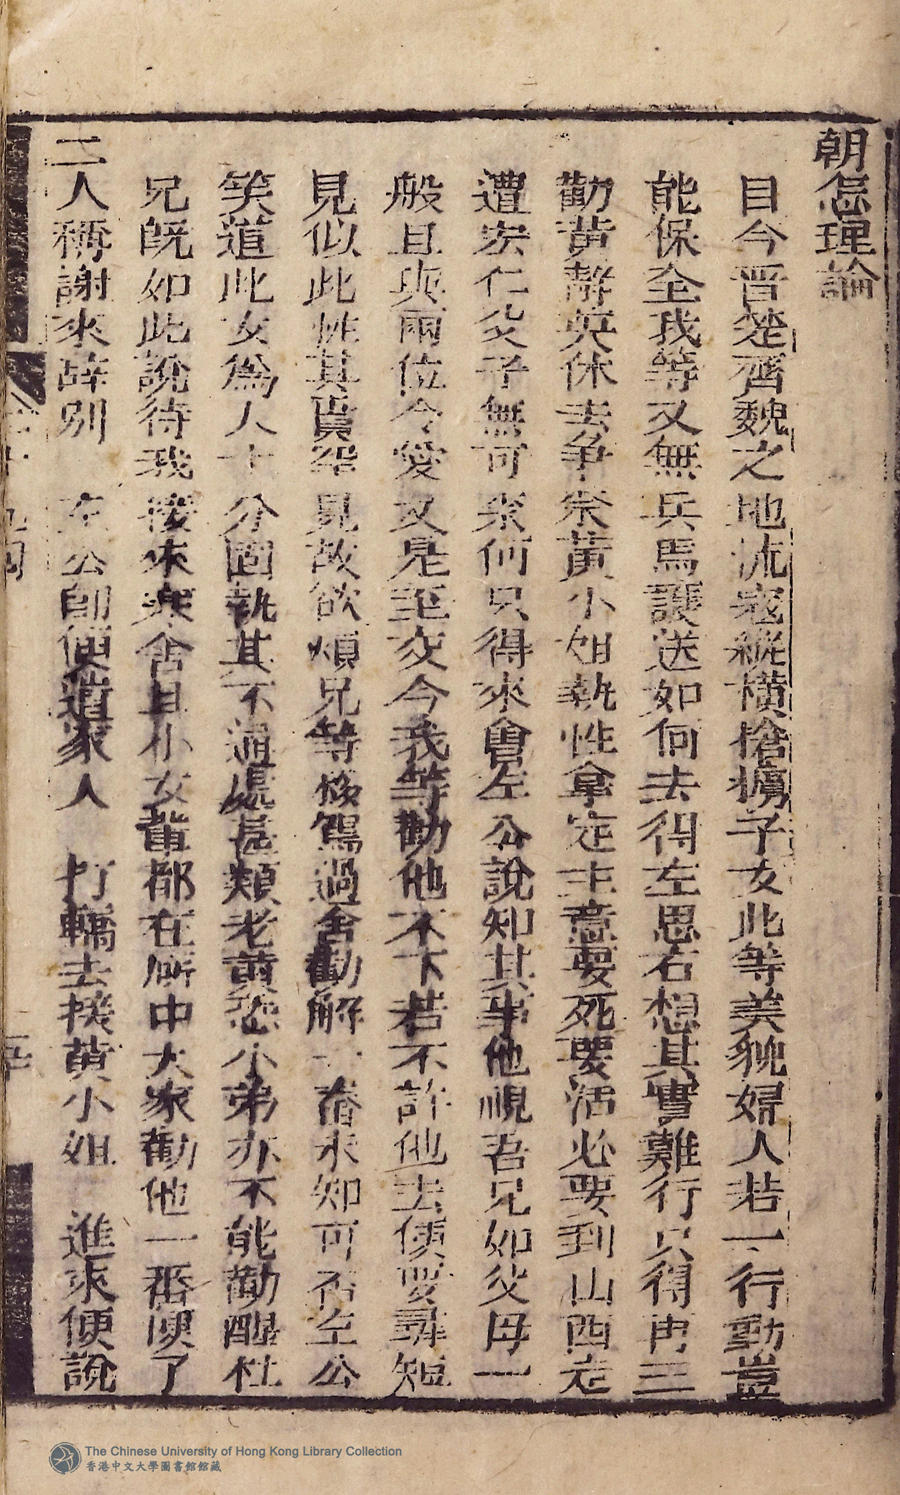 朝怎理論
目今晋楚齊魏之地流寇縱橫搶擄子女此等美貌婦人若一行動豈
能保全我等又無兵馬護送如何去得左思右想其實難行只得再三
勸黃靜英休去爭柰黃小姐執性拿定主意要死要活必要到山西走
遭宋仁父子無可柰何只得來會左公說知其事他視吾兄如父母一
般且與兩位令愛又是至交今我等勸他不下若不許他去便要尋短
見似此性其實罕見故欲煩兄等移駕過舍勸解一畨未知可否左公
笑道此女為人十分固執其不通處甚類老黃恐小弟亦不能勸醒杜
兄旣如此說待我接來寒舍且小女輩都在廝中大家勸他一番便了
二人稱謝來辞别左公卽便道家人打轎去接黃小姐進來便說
九回
The Chinese University of Hong Kong Library Collection
香港中文大學圖書館館藏